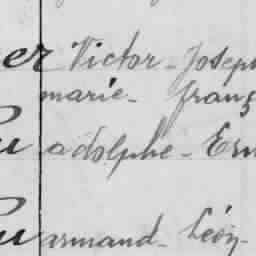 er Victor - Joseph
marie - franç
adolphe - Ern
armand - Léon -